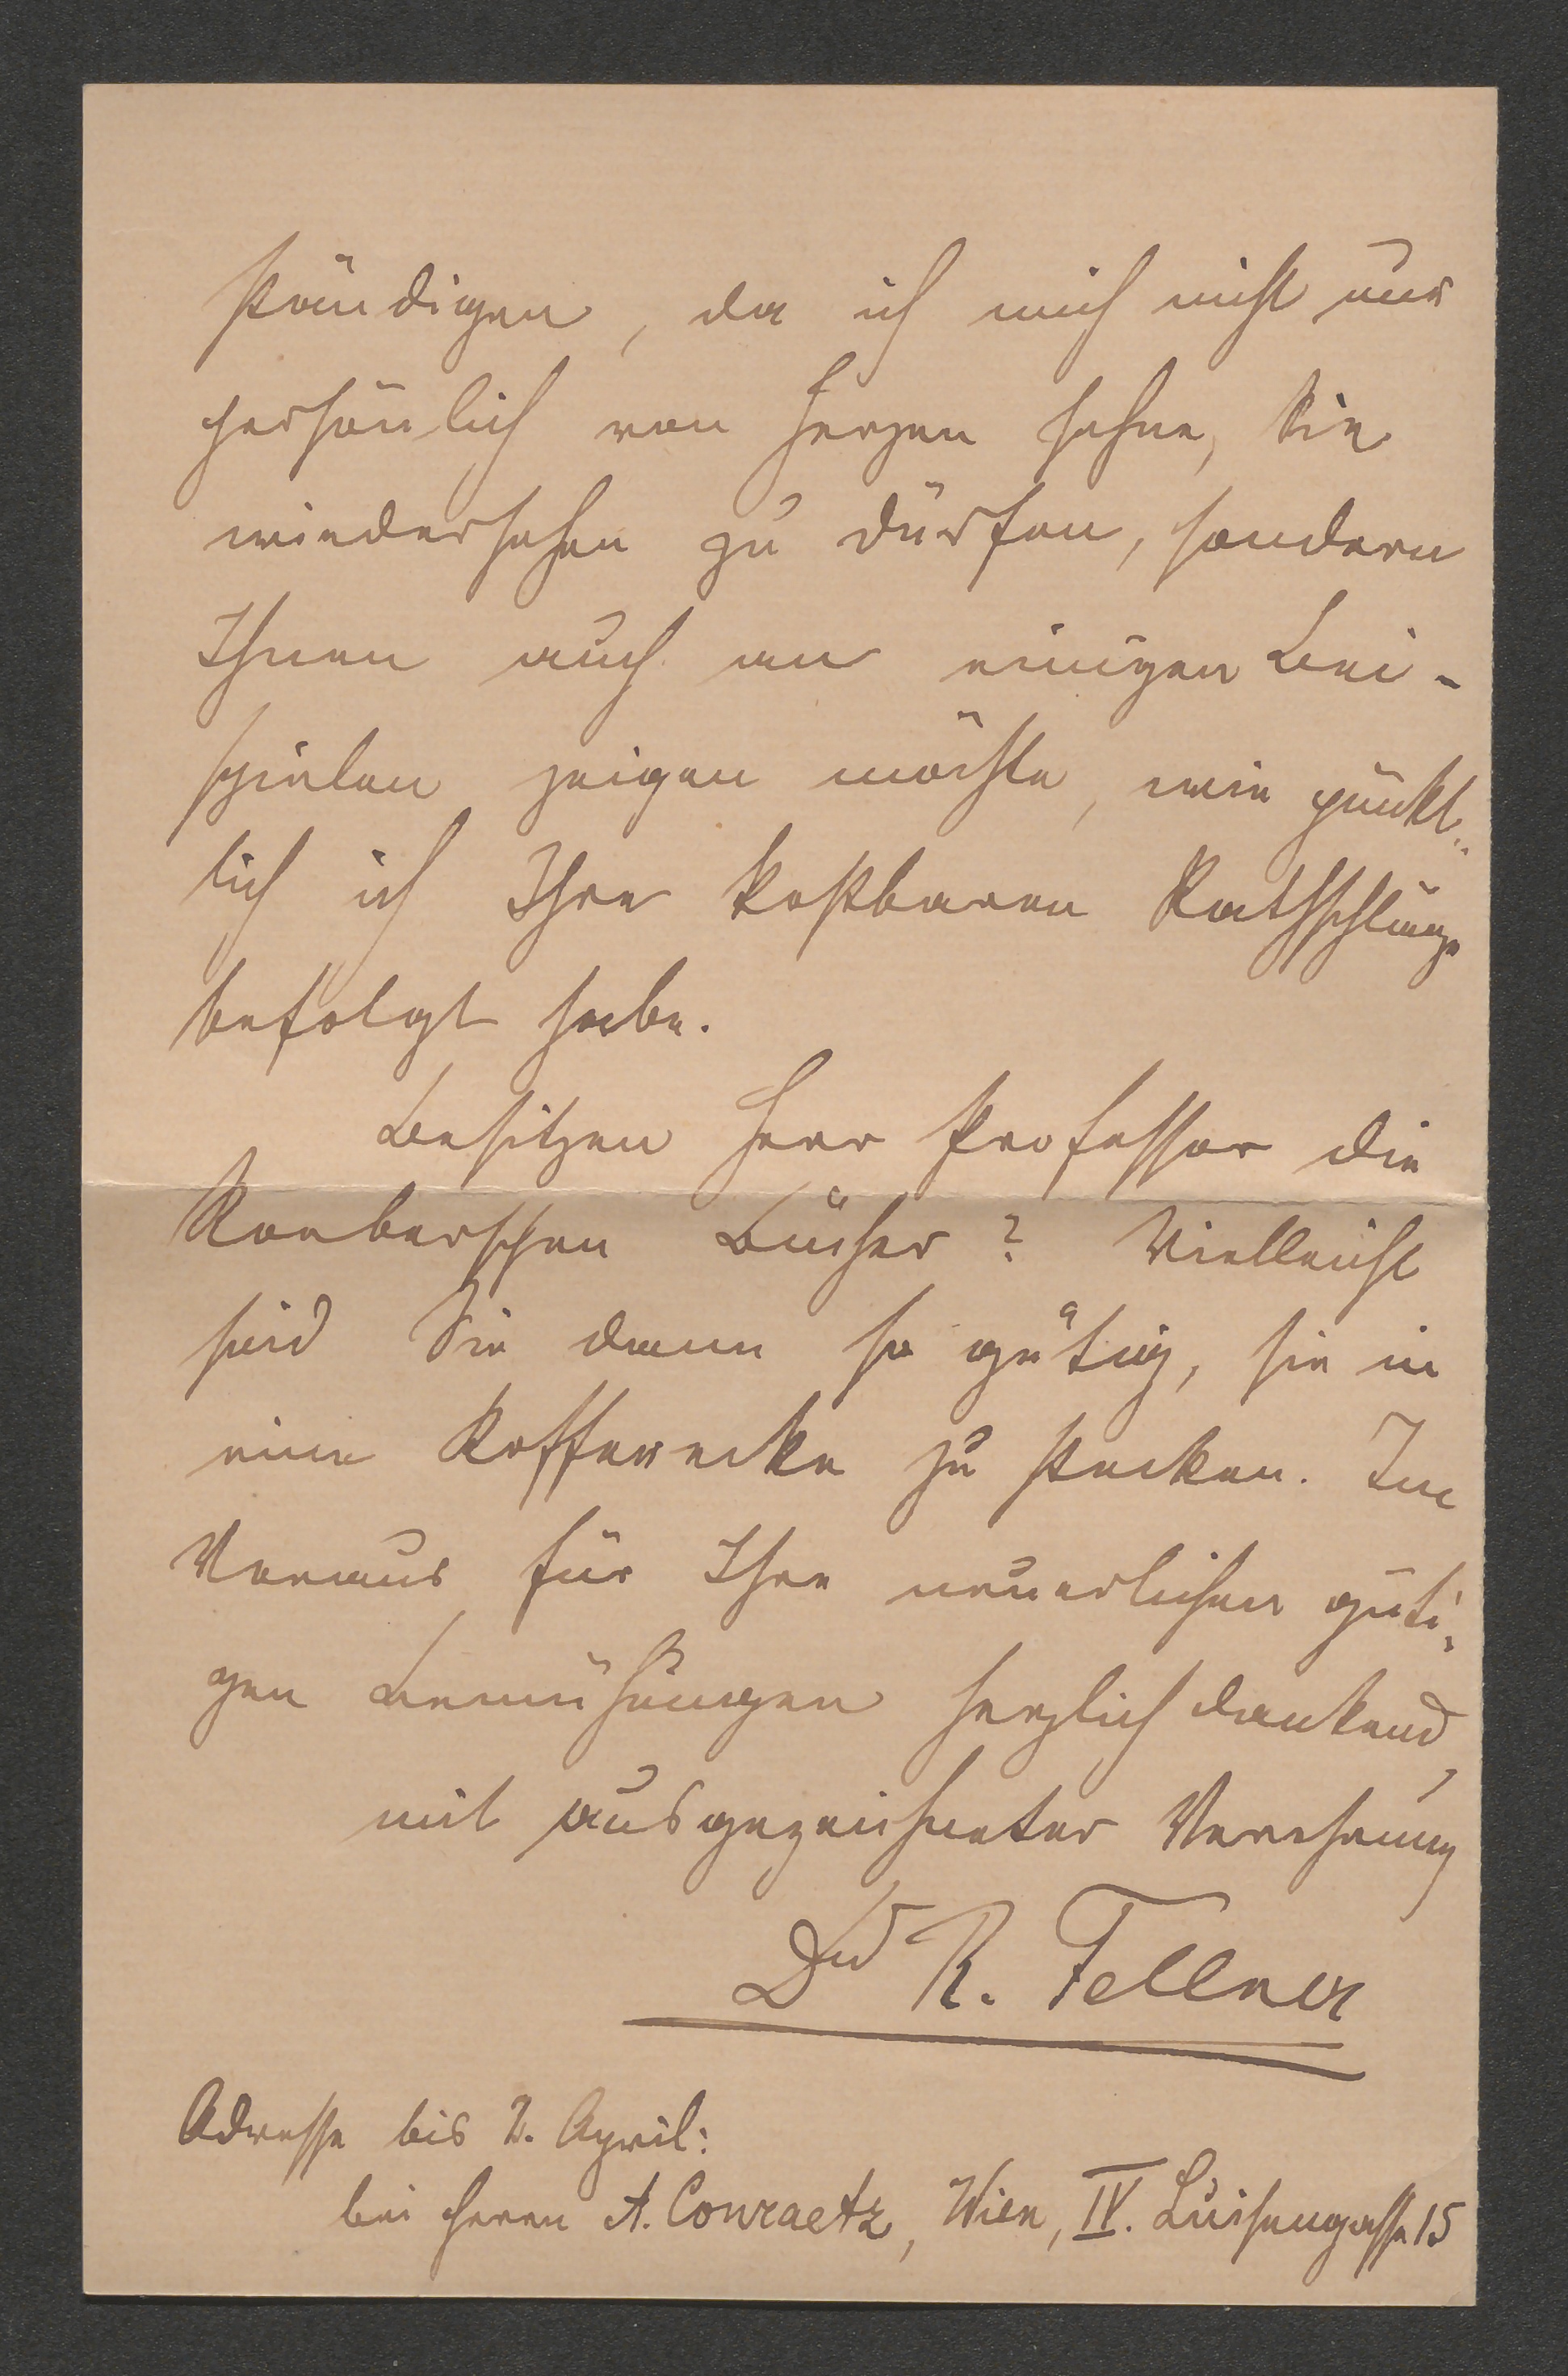 ständigen, da ich mich nicht nur
persönlich von Herzen sehne, Sie
wiedersehen zu dürfen, sondern
Ihnen auch an einigen Bei-
spielen zeigen möchte, wie pünkt-
lich ich Ihre kostbaren Rathschläge
befolgt habe.
Besitzen Herr Professor die
Koerberschen Bücher? Vielleicht
sind Sie dann so gütig, sie in
eine Kofferecke zu stecken. Im
Voraus für Ihre neuerlichen güti-
gen Bemühungen herzlich dankend,
mit ausgezeichneter Verehrung
Dr R. Fellner
Adresse bis 2. April:
bei Herrn A. Conraetz, Wien, IV. Luisengasse 15